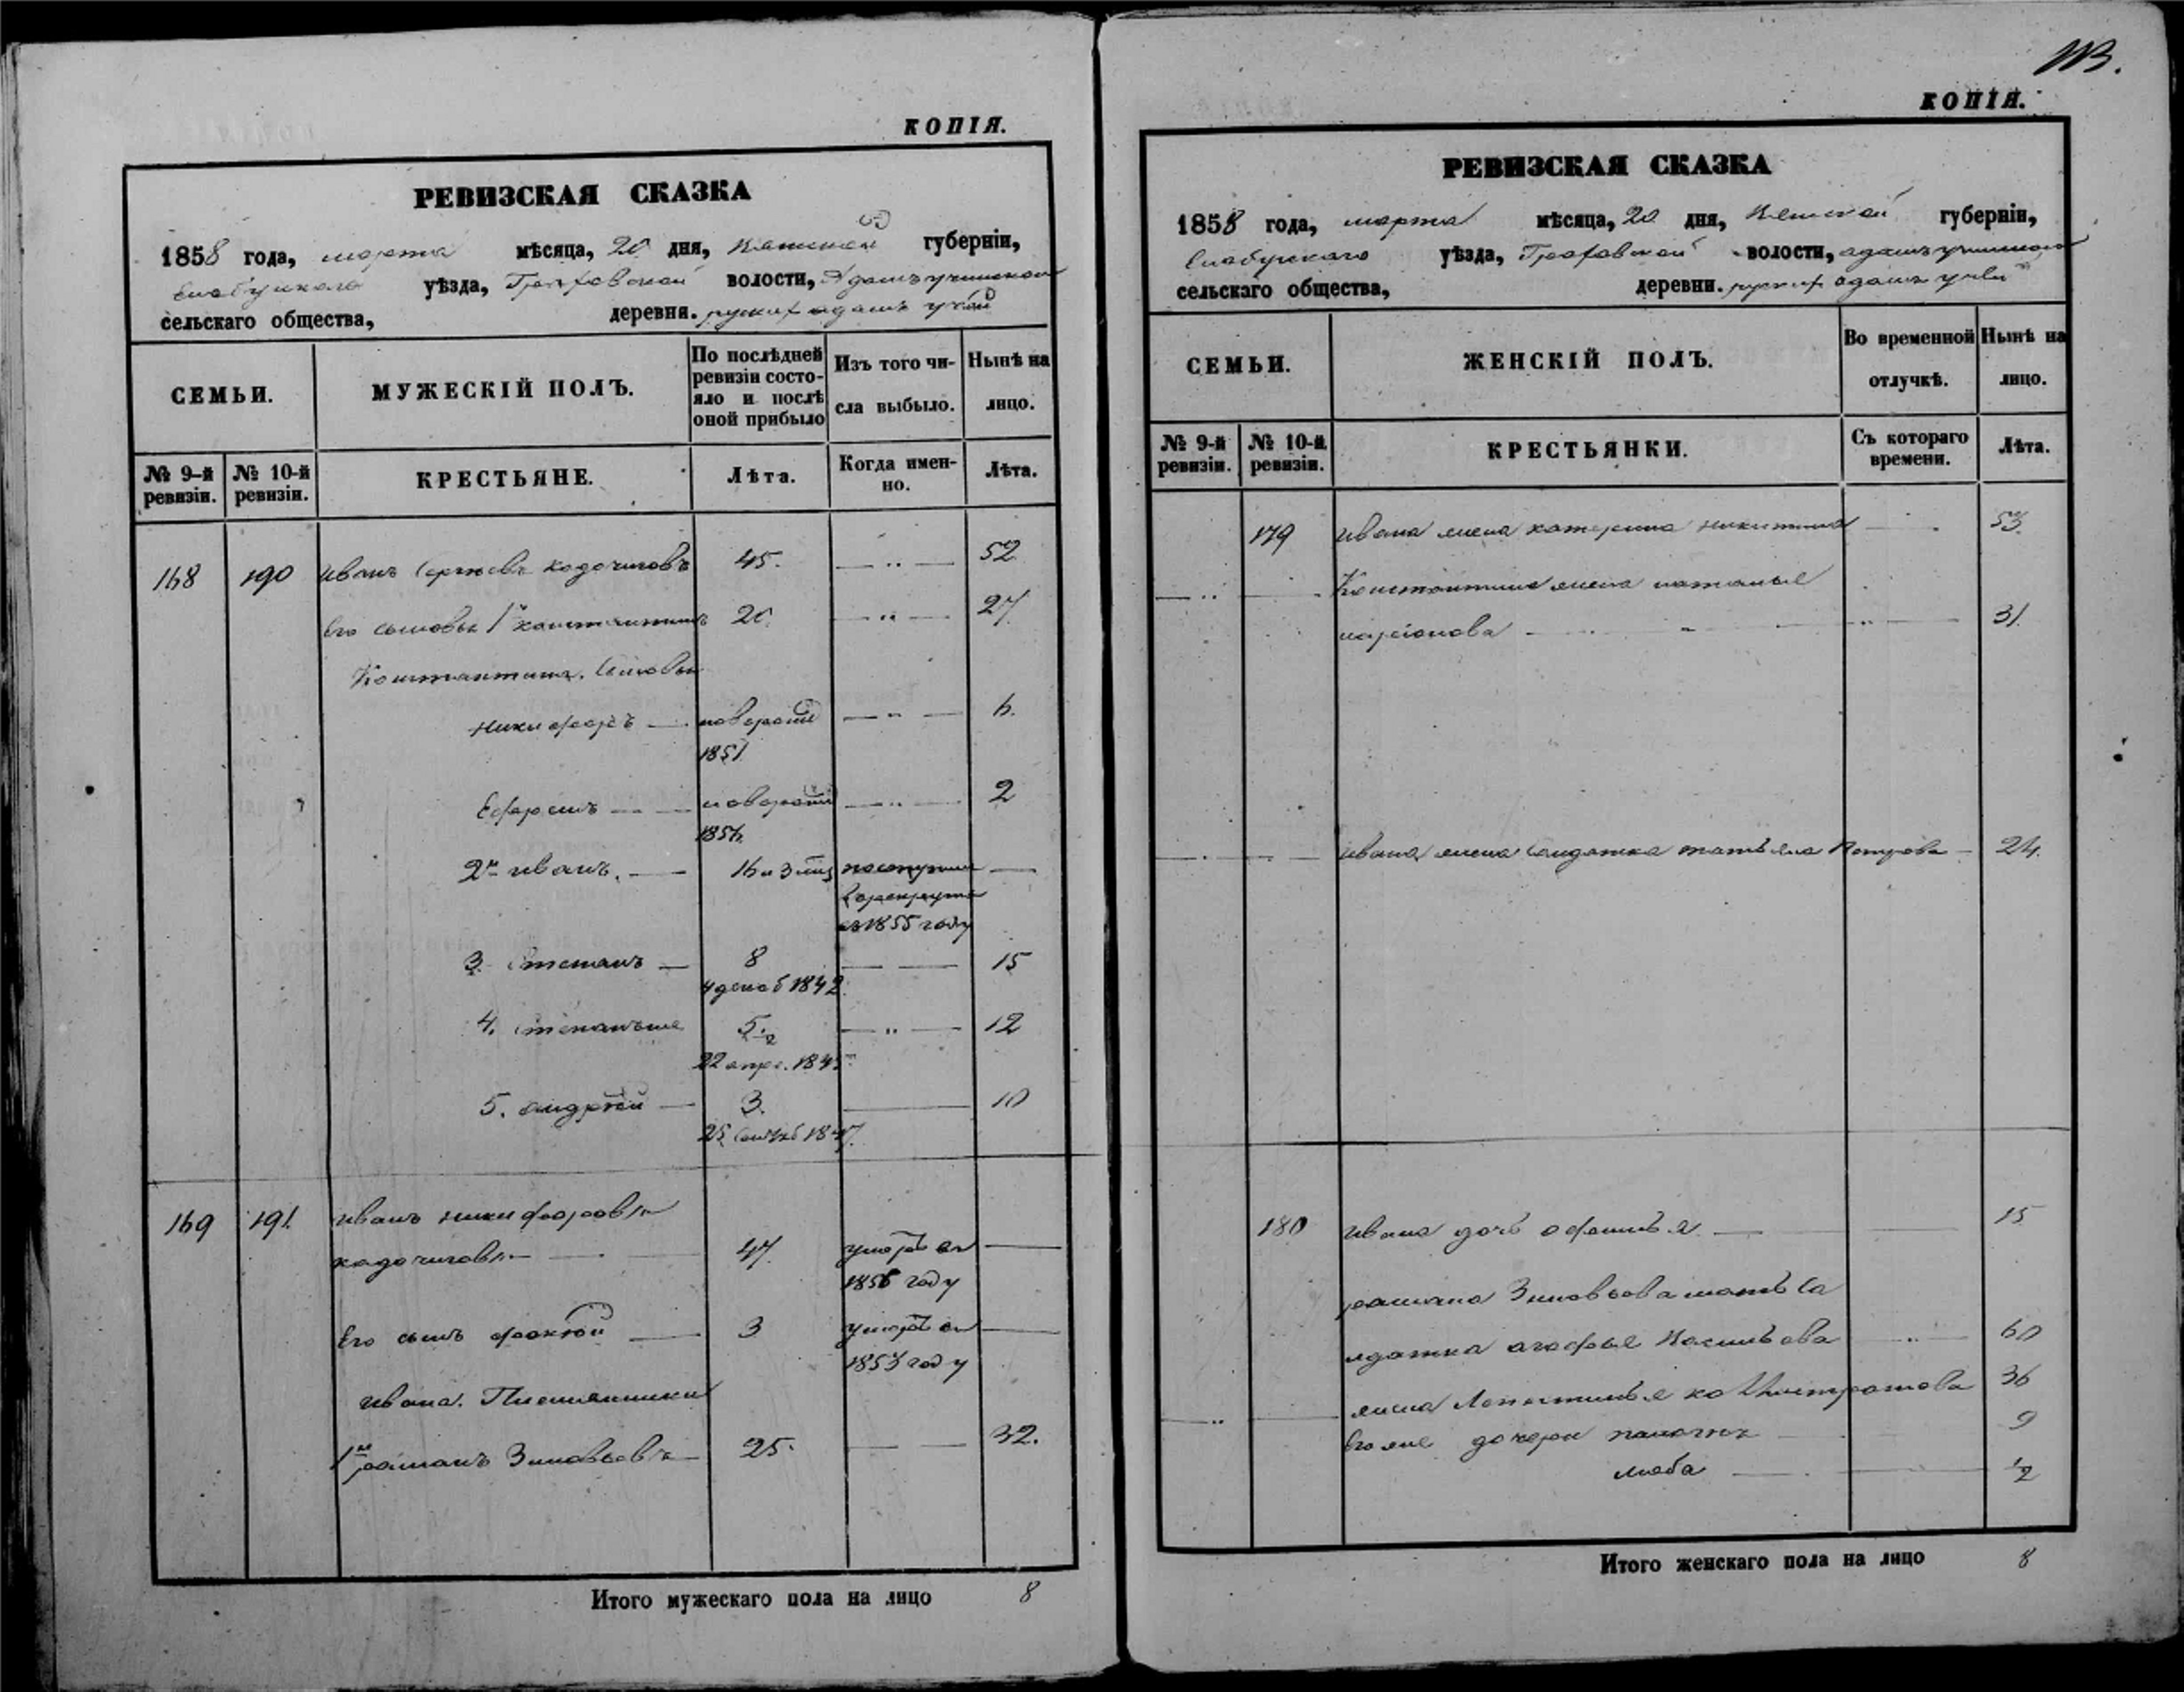 КОПІЯ.
РЕВИЗСКАЯ СКАЗКА
1858 года, марта мѣсяца, 20 дня, Вятской губерніи,
Елабужскаго уѣзда, Граховской волости, Адамъучинскаго
сельскаго общества, деревни. руских адамъ учей
СЕМЬИ.
МУЖЕСКІЙ ПОЛЪ.
По послѣдней ревизіи состояло и послѣ оной прибыло
Изъ того числа выбыло.
Нынѣ на лицо.
№ 9-й ревизіи.
№ 10-й ревизіи.
КРЕСТЬЯНЕ.
Лѣта.
Когда именно.
Лѣта.
168 190 иванъ Сергѣевъ кадочиговъ 45. 52
Его сыновья 1й константинъ 20. 27
Константина. Сыновья
никифоръ новорожд 6.
1851
Ефремъ новорожд 2
1856
2й иванъ. 16 и 3 мѣс поступил
в рекруты
въ 1855 году
3. степанъ 8 15
4 декаб 1842.
4. степанъ же 5 1/2 12
22 апре. 1845
5. андрей 3. 10
25 Октяб 1847.
169 191. иванъ никифоровъ
кадочиговъ 47. умеръ въ
1856 году
Его сынъ фоктей 3 умеръ въ
1853 году
ивана. Племянники
1й романъ Зиновьевъ 25. 32.
Итого мужескаго пола на лицо 8
113.
КОПІЯ.
РЕВИЗСКАЯ СКАЗКА
1858 года, марта мѣсяца, 20 дня, Вятской губерніи,
Елабужскаго уѣзда, Граховской волости, адамъучинскаго
сельскаго общества, деревни. руских адамъ учей
СЕМЬИ.
ЖЕНСКІЙ ПОЛЪ.
Во временной отлучкѣ.
Нынѣ на лицо.
№ 9-й ревизіи.
№ 10-й ревизіи.
КРЕСТЬЯНКИ.
Съ котораго времени.
Лѣта.
179 ивана жена катерина никитина 53.
Константина жена наталья
иларіонова 31.
ивана жена солдатка татьяна Петрова 24.
180 ивана дочь офимья 15
романа Зиновьева мать со
лдатка агафья Васильева 60
жена 36
Его же дочери 9
люба 1/2
Итого женскаго пола на лицо 8